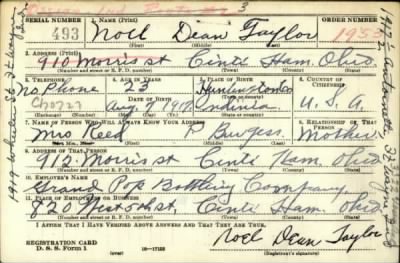 3
SERIAL NUMBER
1. NAME (Print)
ORDER NUMBER
493
Noel Dean Taylor
1953
(First) (Middle) (Last)
2. ADDRESS (Print)
910 Morris st Cinti Ham. Ohio.
(Number and street or R. F. D. number) (Town) (County) (State)
3. TELEPHONE
4. AGE IN YEARS
5. PLACE OF BIRTH
6. COUNTRY OF CITIZENSHIP
No Phone
23
Huntington Co
DATE OF BIRTH
Aug 7 1917
Indiana
U. S. A.
(Exchange) (Number)
(Mo.) (Day) (Yr.)
(State or country)
7. NAME OF PERSON WHO WILL ALWAYS KNOW YOUR ADDRESS
RELATIONSHIP OF THAT PERSON
Mrs Reed P Burgess.
Mother
(Mr., Mrs., Miss) (First) (Middle) (Last)
9. ADDRESS OF THAT PERSON
912 Morris st Cinti Ham. Ohio.
(Number and street or R. F. D. number) (Town) (County) (State)
10. EMPLOYER'S NAME
Grand Pop Bottling Company
11. PLACE OF EMPLOYMENT OR BUSINESS
820 West 5th st. Cinti Ham. Ohio
(Number and street or R. F. D. number) (Town) (County) (State)
I AFFIRM THAT I HAVE VERIFIED ABOVE ANSWERS AND THAT THEY ARE TRUE.
REGISTRATION CARD
D. S. S. Form 1
(over)
Noel Dean Taylor